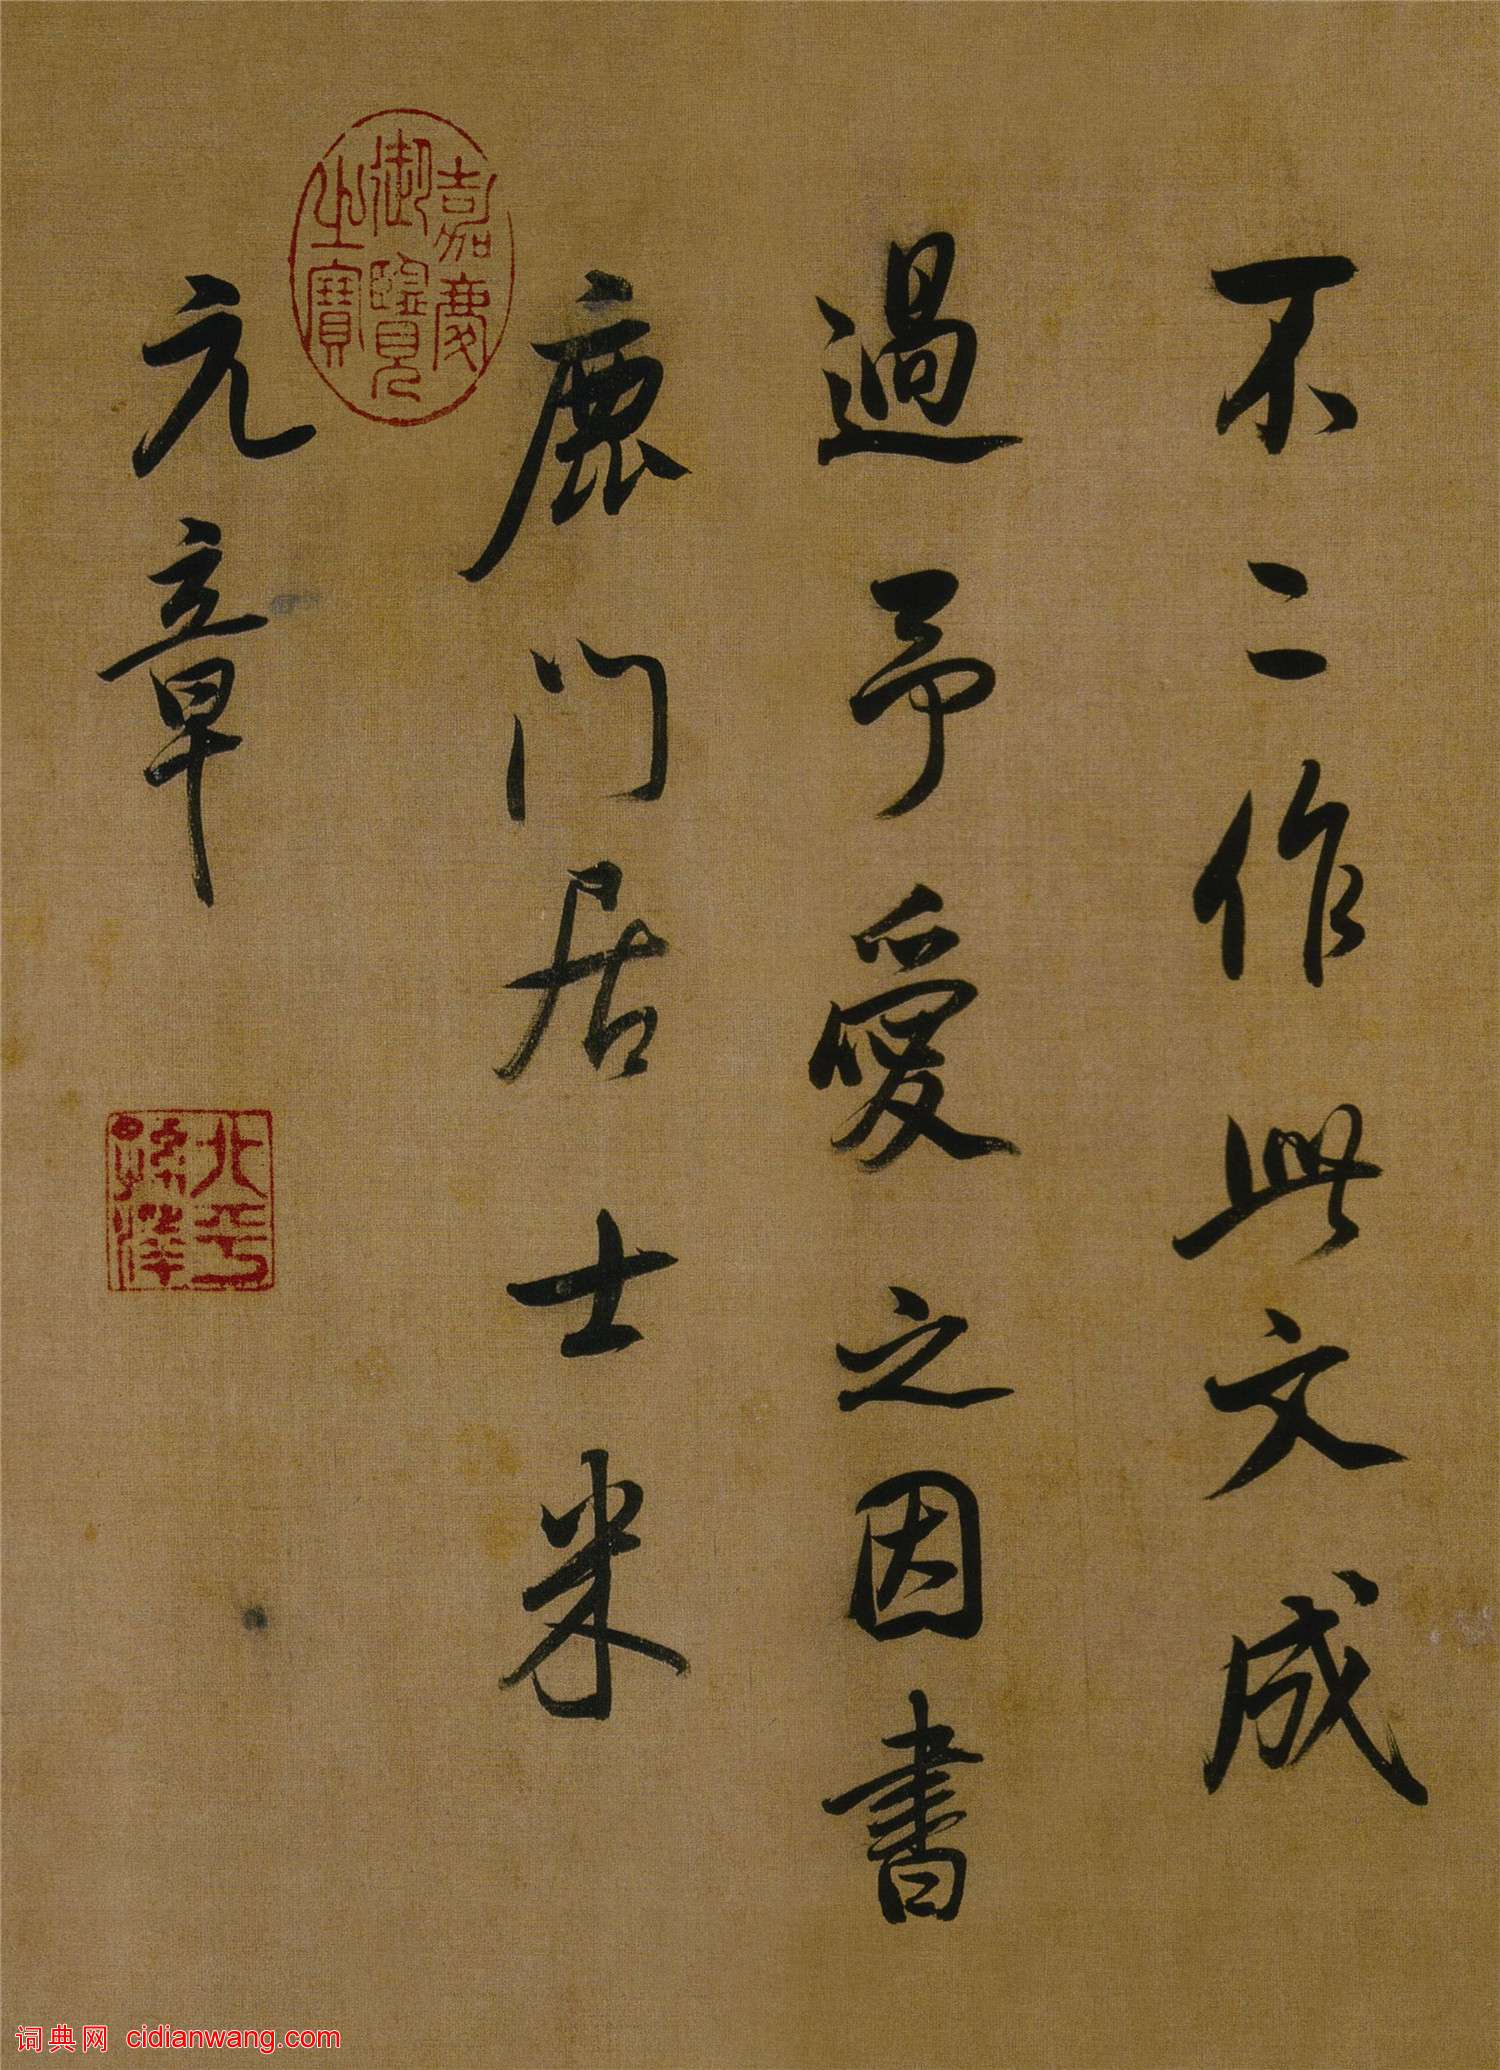 不二作與文成
過予愛之因書
鹿門居士米
元章
嘉慶御覽之寶
北平孫澤
词典网 cidianwang.com